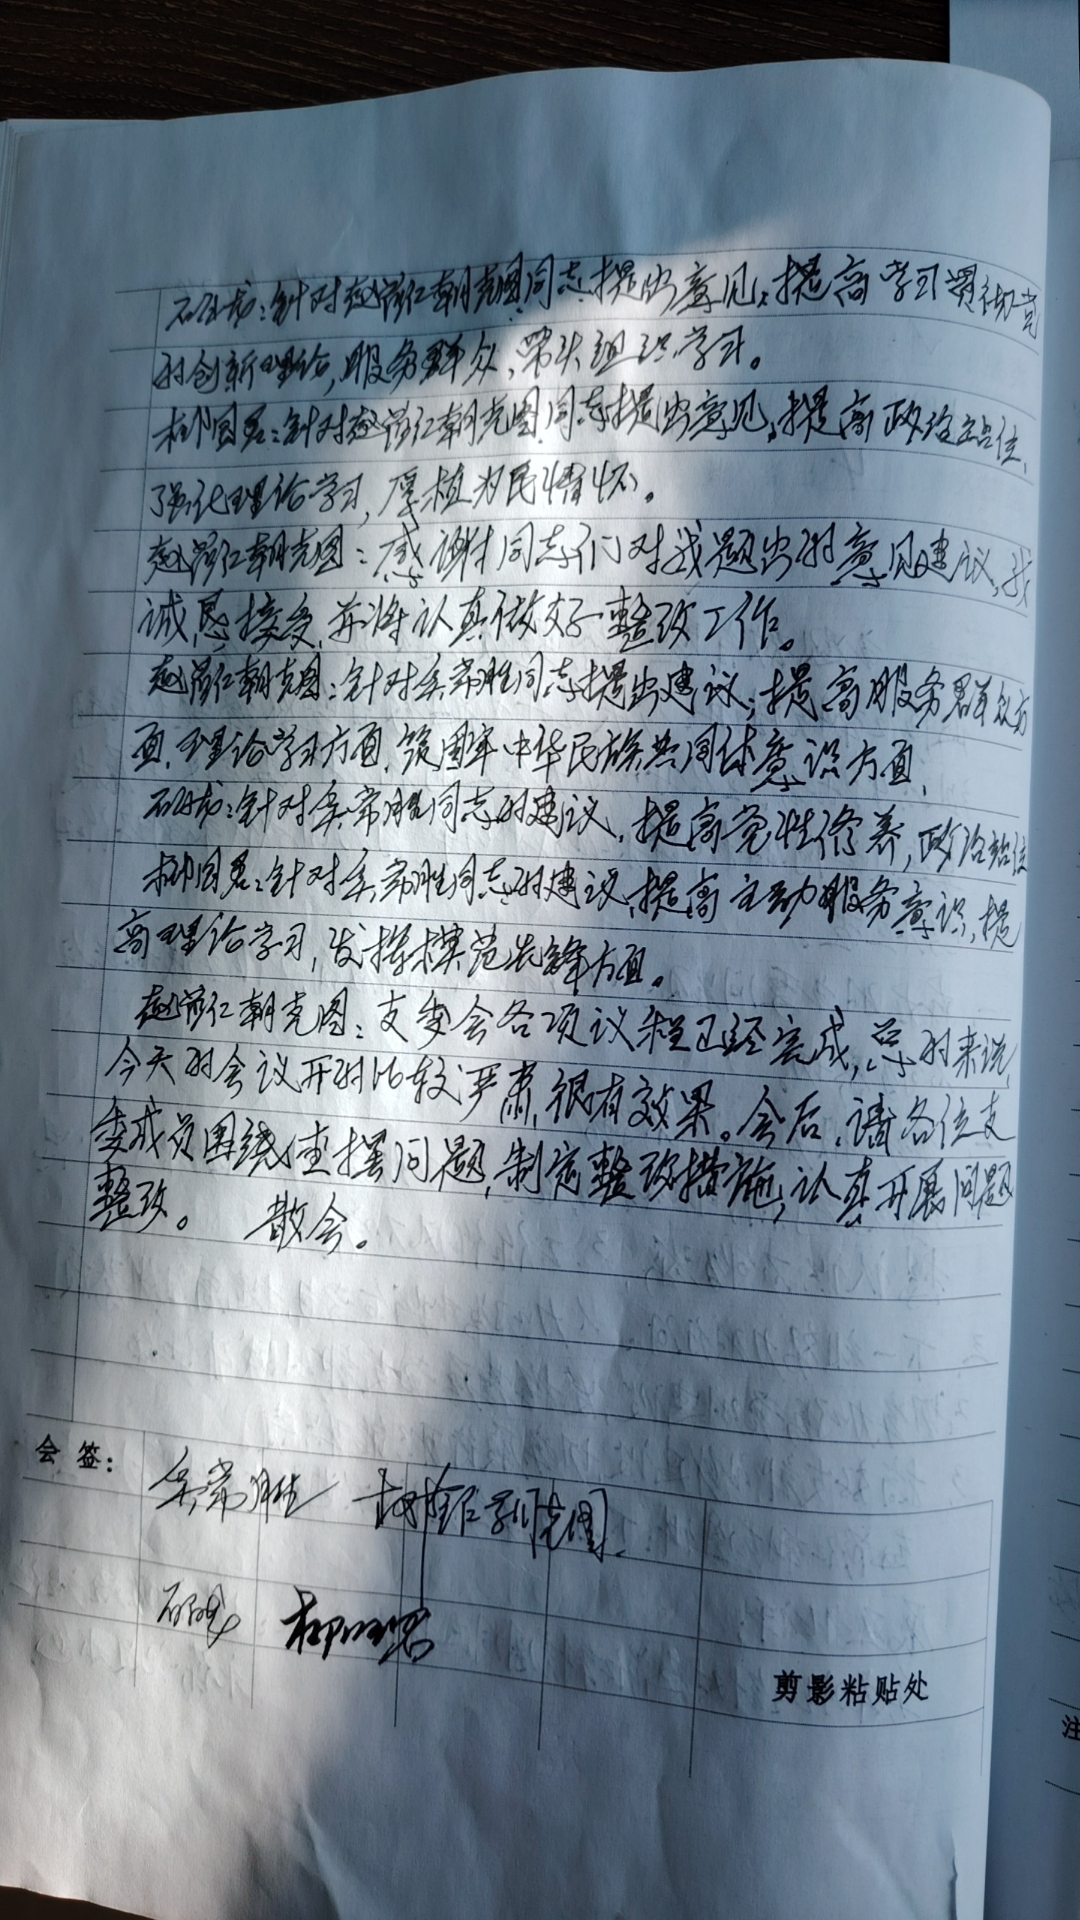 针对 仁朝克图同志提出意见：提高学习贯彻党
的创新理论，服务群众，带头组织学习。
柳国君：针对 仁朝克图同志提出意见，提高政治站位、
强化理论学习，厚植为民情怀。
仁朝克图：感谢同志们对我题出的意见建议，我
诚恳接受，并将认真做好整改工作。
仁朝克图：针对吴常胜同志提出建议；提高服务群众方
面，理论学习方面，筑固牢中华民族共同体意识方面，
针对吴常胜同志的建议，提高党性修养，政治站位
柳国君：针对吴常胜同志的建议，提高主动服务意识，提
高理论学习，发挥模范先锋方面。
仁朝克图：支委会各项议程已经完成，总的来说，
今天的会议开的比较严肃，很有效果。会后，请各位支
委成员围绕查摆问题，制定整改措施，认真开展问题
整改。 散会。
会签：
吴常胜
剪影粘贴处
注